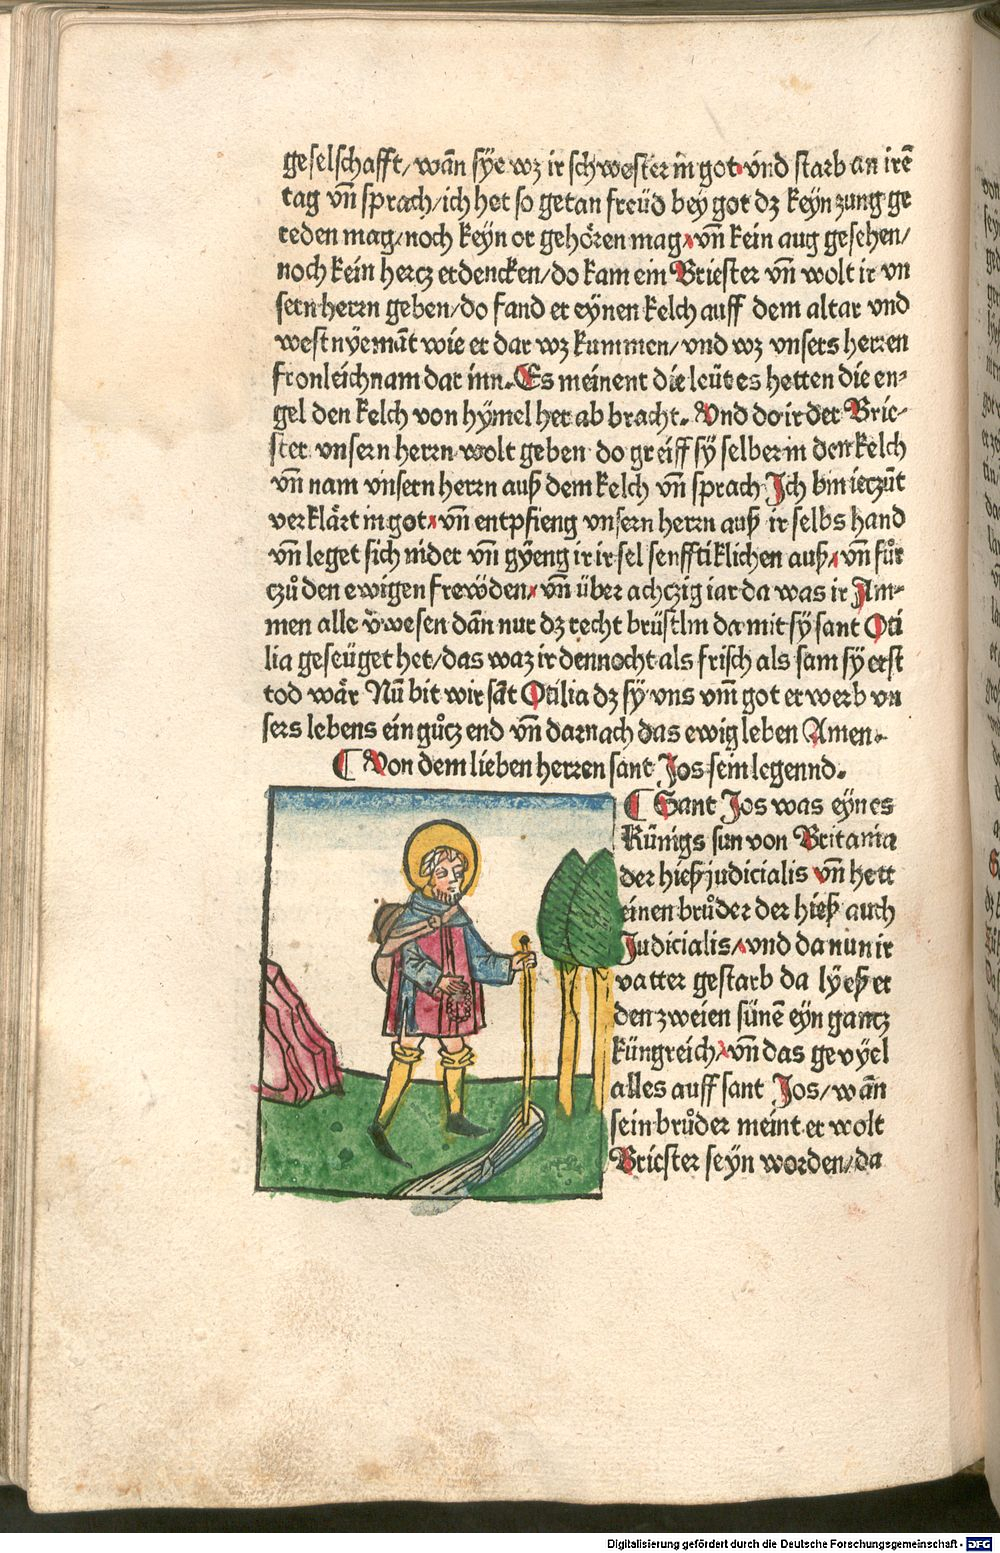 geselschafft/ wañ sÿe wz ir schwester in got· vnd starb an irē
tag vñ sprach/ ich het so getan freüd bey got dz keÿn zung ge
reden mag/ noch keÿn or gehören mag/ vñ kein aug gesehen/
noch kein hercz erdencken/ do kam ein Briester vñ wolt ir vn
sern herrn geben/ do fand er eÿnen kelch auff dem altar vnd
west nÿemāt wie er dar wz kummen/ vnd wz vnsers herren
fronleichnam dar inn. Es meinent die leüt es hetten die en⸗
gel den kelch von hÿmel her ab bracht. Vnd do ir der Brie⸗
ster vnsern herrn wolt geben do greiff sÿ selber in den kelch
vñ nam vnsern herrn auß dem kelch vñ sprach Jch bin ieczūt
verklärt in got/ vñ entpfieng vnsern herrn auß ir selbs hand
vñ leget sich nider vñ gÿeng ir ir sel senfftiklichen auß/ vñ fůr
czů den ewigen frewden/ vñ über achczig iar da was ir Am⸗
men alle v̈wesen dañ nur dz recht brüstlin da mit sÿ sant Oti
lia geseüget het/ das waz ir dennocht als frisch als sam sÿ erst
tod wär Nū bit wir sāt Otilia dz sÿ vns vm̄ got erwerb vn
sers lebens ein gůcz end vñ darnach das ewig leben Amen.
¶ Von dem lieben herren sant Jos sein legennd.
¶ Sant Jos was eÿnes
Künigs sun von Britania
der hieß judicialis vñ hett
einen brůder der hieß auch
Judicialis/ vnd da nun ir
vatter gestarb da lÿeß er
den zweien sünē eÿn gantz
küngreich/ vñ das gevÿel
alles auff sant Jos/ wañ
sein brůder meint er wolt
Briester seÿn worden/ da
Digitalisierung gefördert durch die Deutsche Forschungsgemeinschaft - DFG